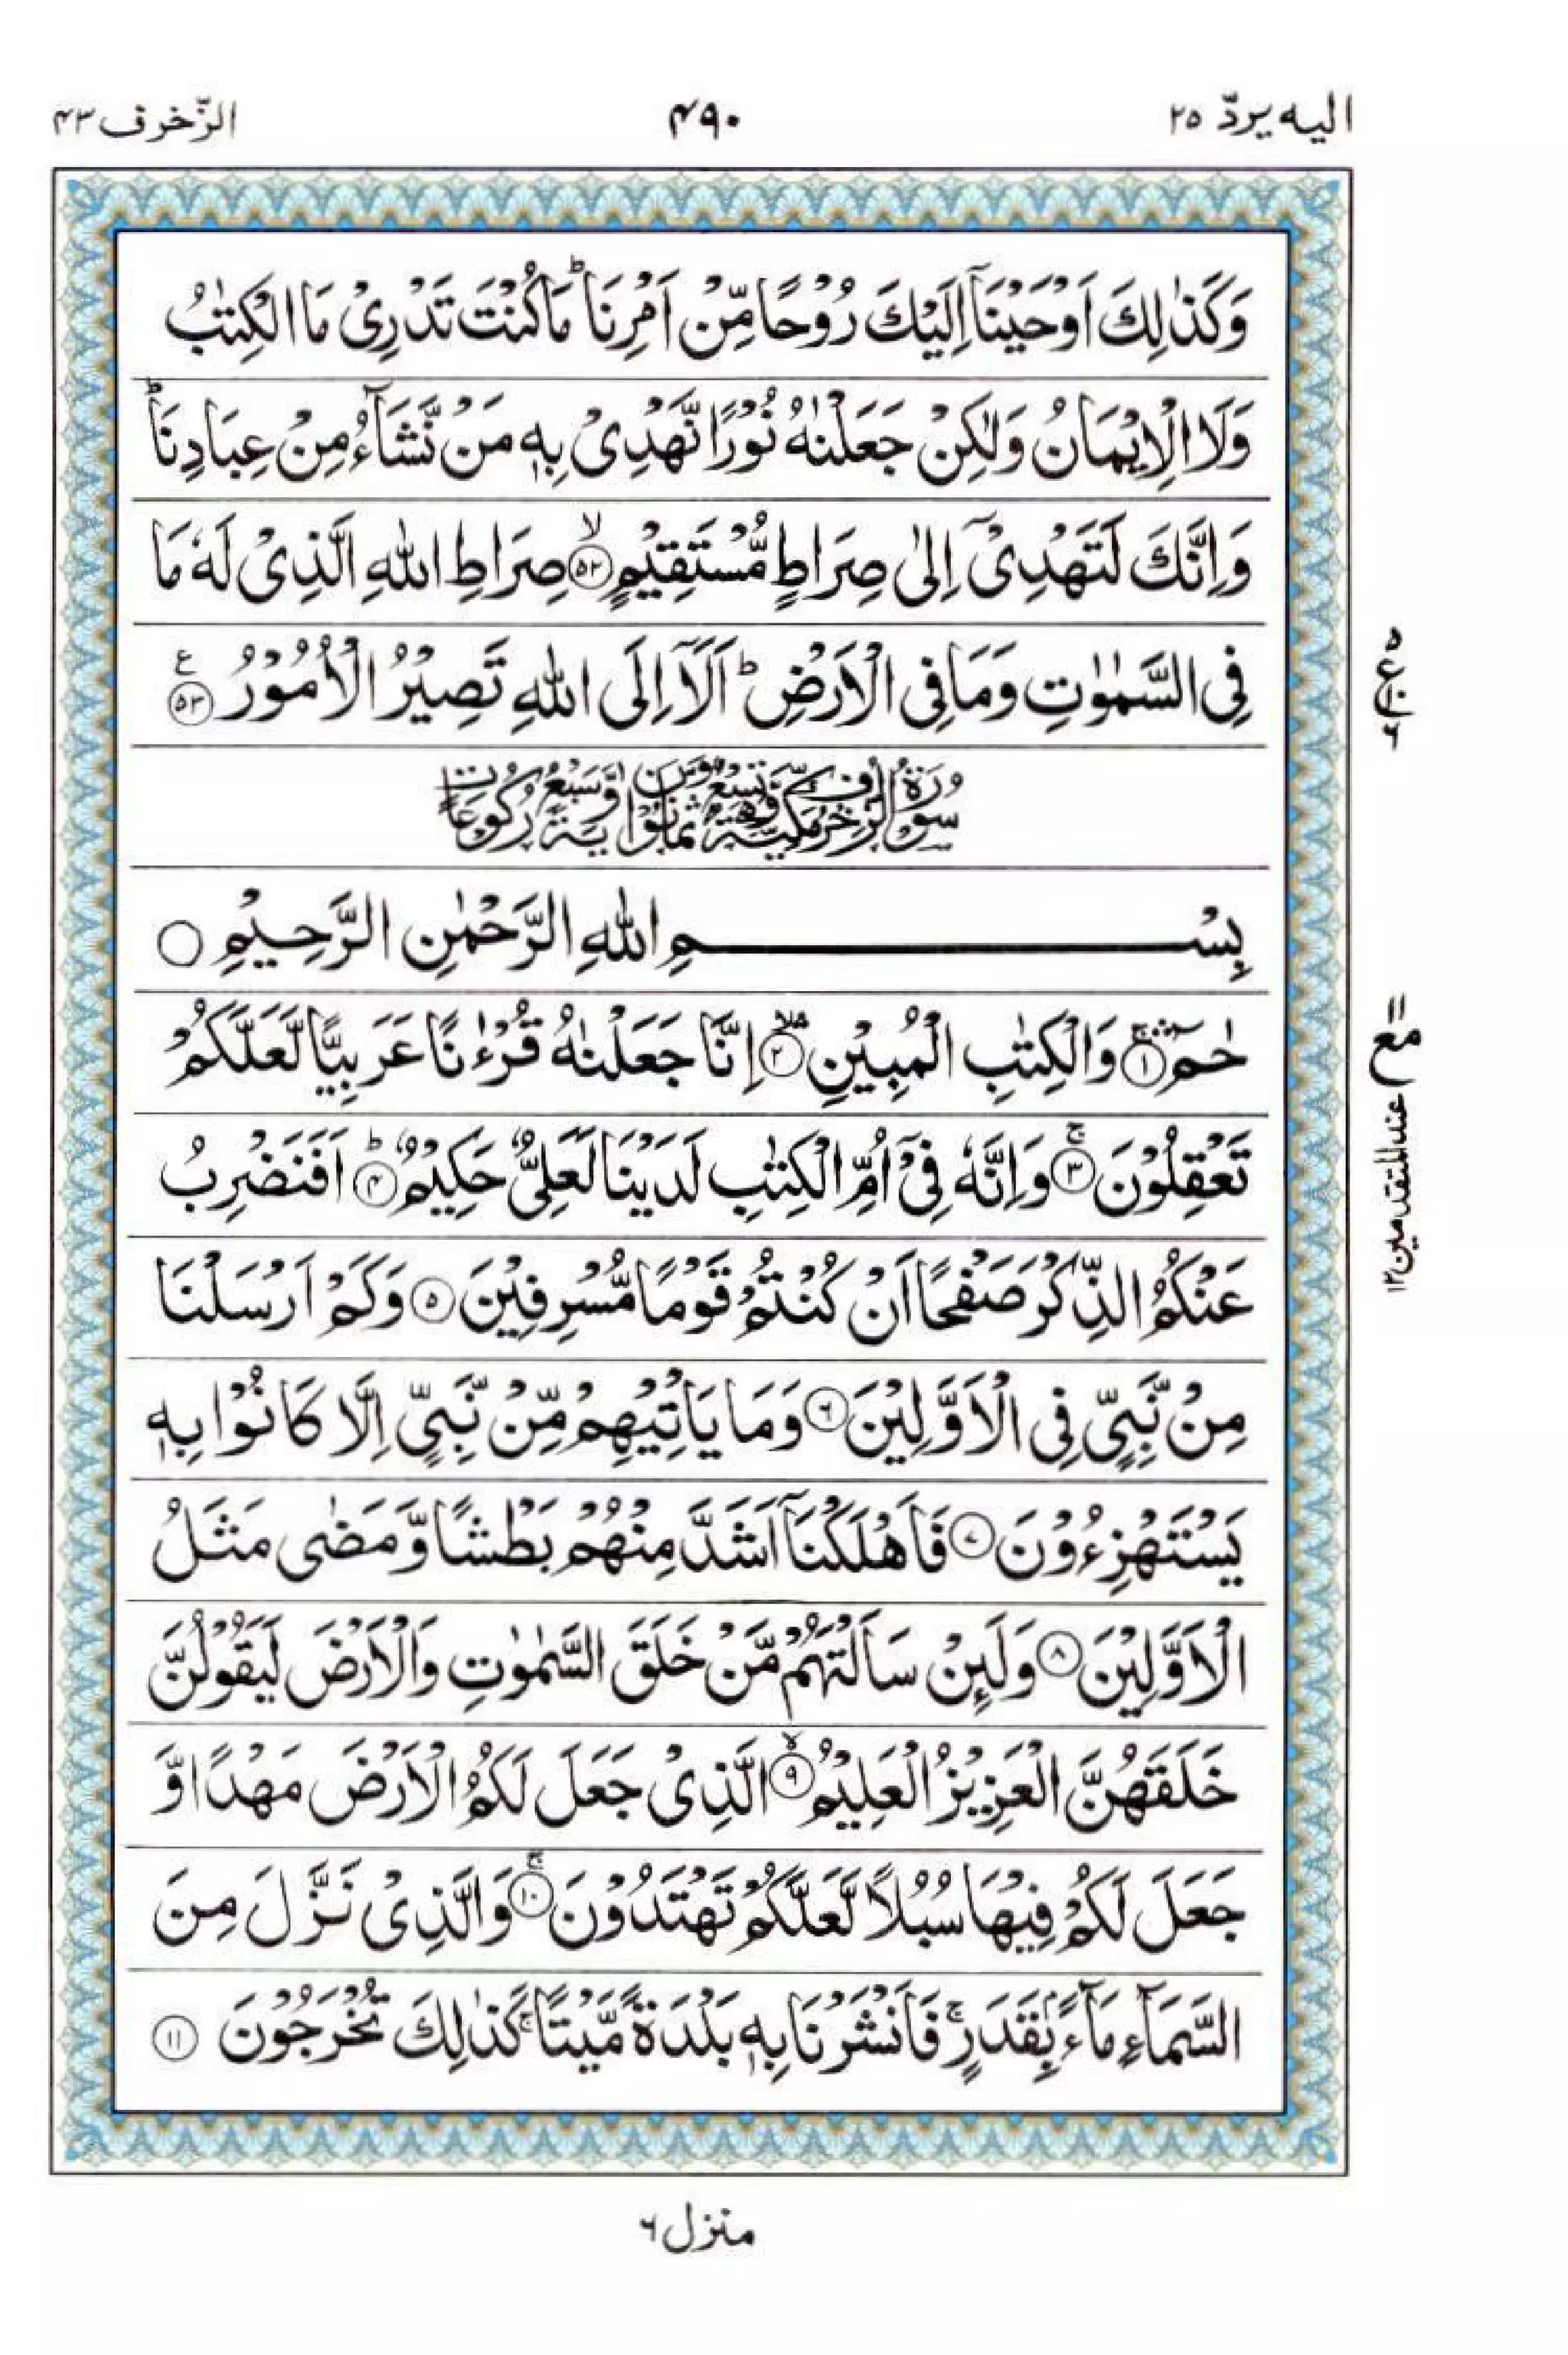 الیه یردّ ۲۵
۴۹۰
الزّخرف ۴۳
وَكَذٰلِكَ اَوْحَيْنَاۤ اِلَيْكَ رُوْحًا مِّنْ اَمْرِنَا ؕ مَا كُنْتَ تَدْرِىْ مَا الْكِتٰبُ
وَلَا الْاِيْمَانُ وَلٰكِنْ جَعَلْنٰهُ نُوْرًا نَّهْدِىْ بِهٖ مَنْ نَّشَآءُ مِنْ عِبَادِنَا ؕ
وَاِنَّكَ لَتَهْدِىْۤ اِلٰى صِرَاطٍ مُّسْتَقِيْمٍ ۙ‏﴿۵۲﴾ صِرَاطِ اللّٰهِ الَّذِىْ لَهٗ مَا
فِى السَّمٰوٰتِ وَمَا فِى الْاَرْضِ ؕ اَلَاۤ اِلَى اللّٰهِ تَصِيْرُ الْاُمُوْرُ ﴿۵۳﴾ ع
۵ ع ۱۰ ۶
سُوْرَةُ الزُّخْرُفِ مَكِّيَّةٌ وَّهِىَ تِسْعٌ وَّثَمَانُوْنَ اٰيَةً وَّسَبْعُ رُكُوْعَاتٍ
بِسْمِ اللّٰهِ الرَّحْمٰنِ الرَّحِيْمِ ○
حٰمٓ ۚۛ﴿۱﴾ وَالْكِتٰبِ الْمُبِيْنِ ۙۛ﴿۲﴾ اِنَّا جَعَلْنٰهُ قُرْءٰنًا عَرَبِيًّا لَّعَلَّكُمْ
مع
عند المتقدمین ۱۲
تَعْقِلُوْنَ ۚ﴿۳﴾ وَاِنَّهٗ فِىْۤ اُمِّ الْكِتٰبِ لَدَيْنَا لَعَلِىٌّ حَكِيْمٌ ؕ﴿۴﴾ اَفَنَضْرِبُ
عَنْكُمُ الذِّكْرَ صَفْحًا اَنْ كُنْتُمْ قَوْمًا مُّسْرِفِيْنَ ﴿۵﴾ وَكَمْ اَرْسَلْنَا
مِنْ نَّبِىٍّ فِى الْاَوَّلِيْنَ ﴿۶﴾ وَمَا يَاْتِيْهِمْ مِّنْ نَّبِىٍّ اِلَّا كَانُوْا بِهٖ
يَسْتَهْزِءُوْنَ ﴿۷﴾ فَاَهْلَكْنَاۤ اَشَدَّ مِنْهُمْ بَطْشًا وَّمَضٰى مَثَلُ
الْاَوَّلِيْنَ ﴿۸﴾ وَلَئِنْ سَاَلْتَهُمْ مَّنْ خَلَقَ السَّمٰوٰتِ وَالْاَرْضَ لَيَقُوْلُنَّ
خَلَقَهُنَّ الْعَزِيْزُ الْعَلِيْمُ ۙ﴿۹﴾ الَّذِىْ جَعَلَ لَكُمُ الْاَرْضَ مَهْدًا وَّ
جَعَلَ لَكُمْ فِيْهَا سُبُلًا لَّعَلَّكُمْ تَهْتَدُوْنَ ۚ﴿۱۰﴾ وَالَّذِىْ نَزَّلَ مِنَ
السَّمَآءِ مَآءًۢ بِقَدَرٍ ۚ فَاَنْشَرْنَا بِهٖ بَلْدَةً مَّيْتًا ۚ كَذٰلِكَ تُخْرَجُوْنَ ﴿۱۱﴾
منزل ۶